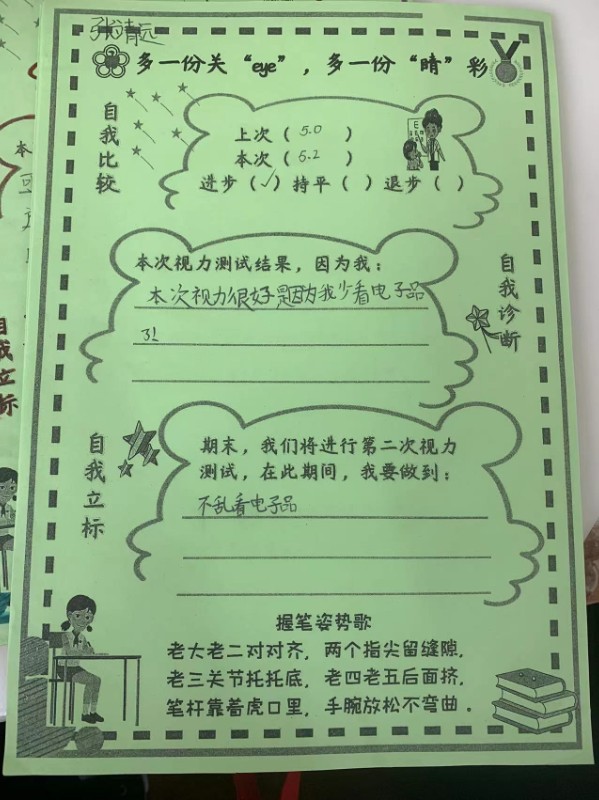 张靖远
多一份关“eye”，多一份“睛”彩
自我比较
上次（5.0）
本次（5.2）
进步（✓）持平（ ）退步（ ）
本次视力测试结果，因为我：
本次视力很好是因为我少看电子品
了!
自我诊断
自我立标
期末，我们将进行第二次视力
测试，在此期间，我要做到：
不乱看电子品
握笔姿势歌
老大老二对对齐，两个指尖留缝隙，
老三关节托托底，老四老五后面挤，
笔杆靠着虎口里，手腕放松不弯曲．
本
自我立标